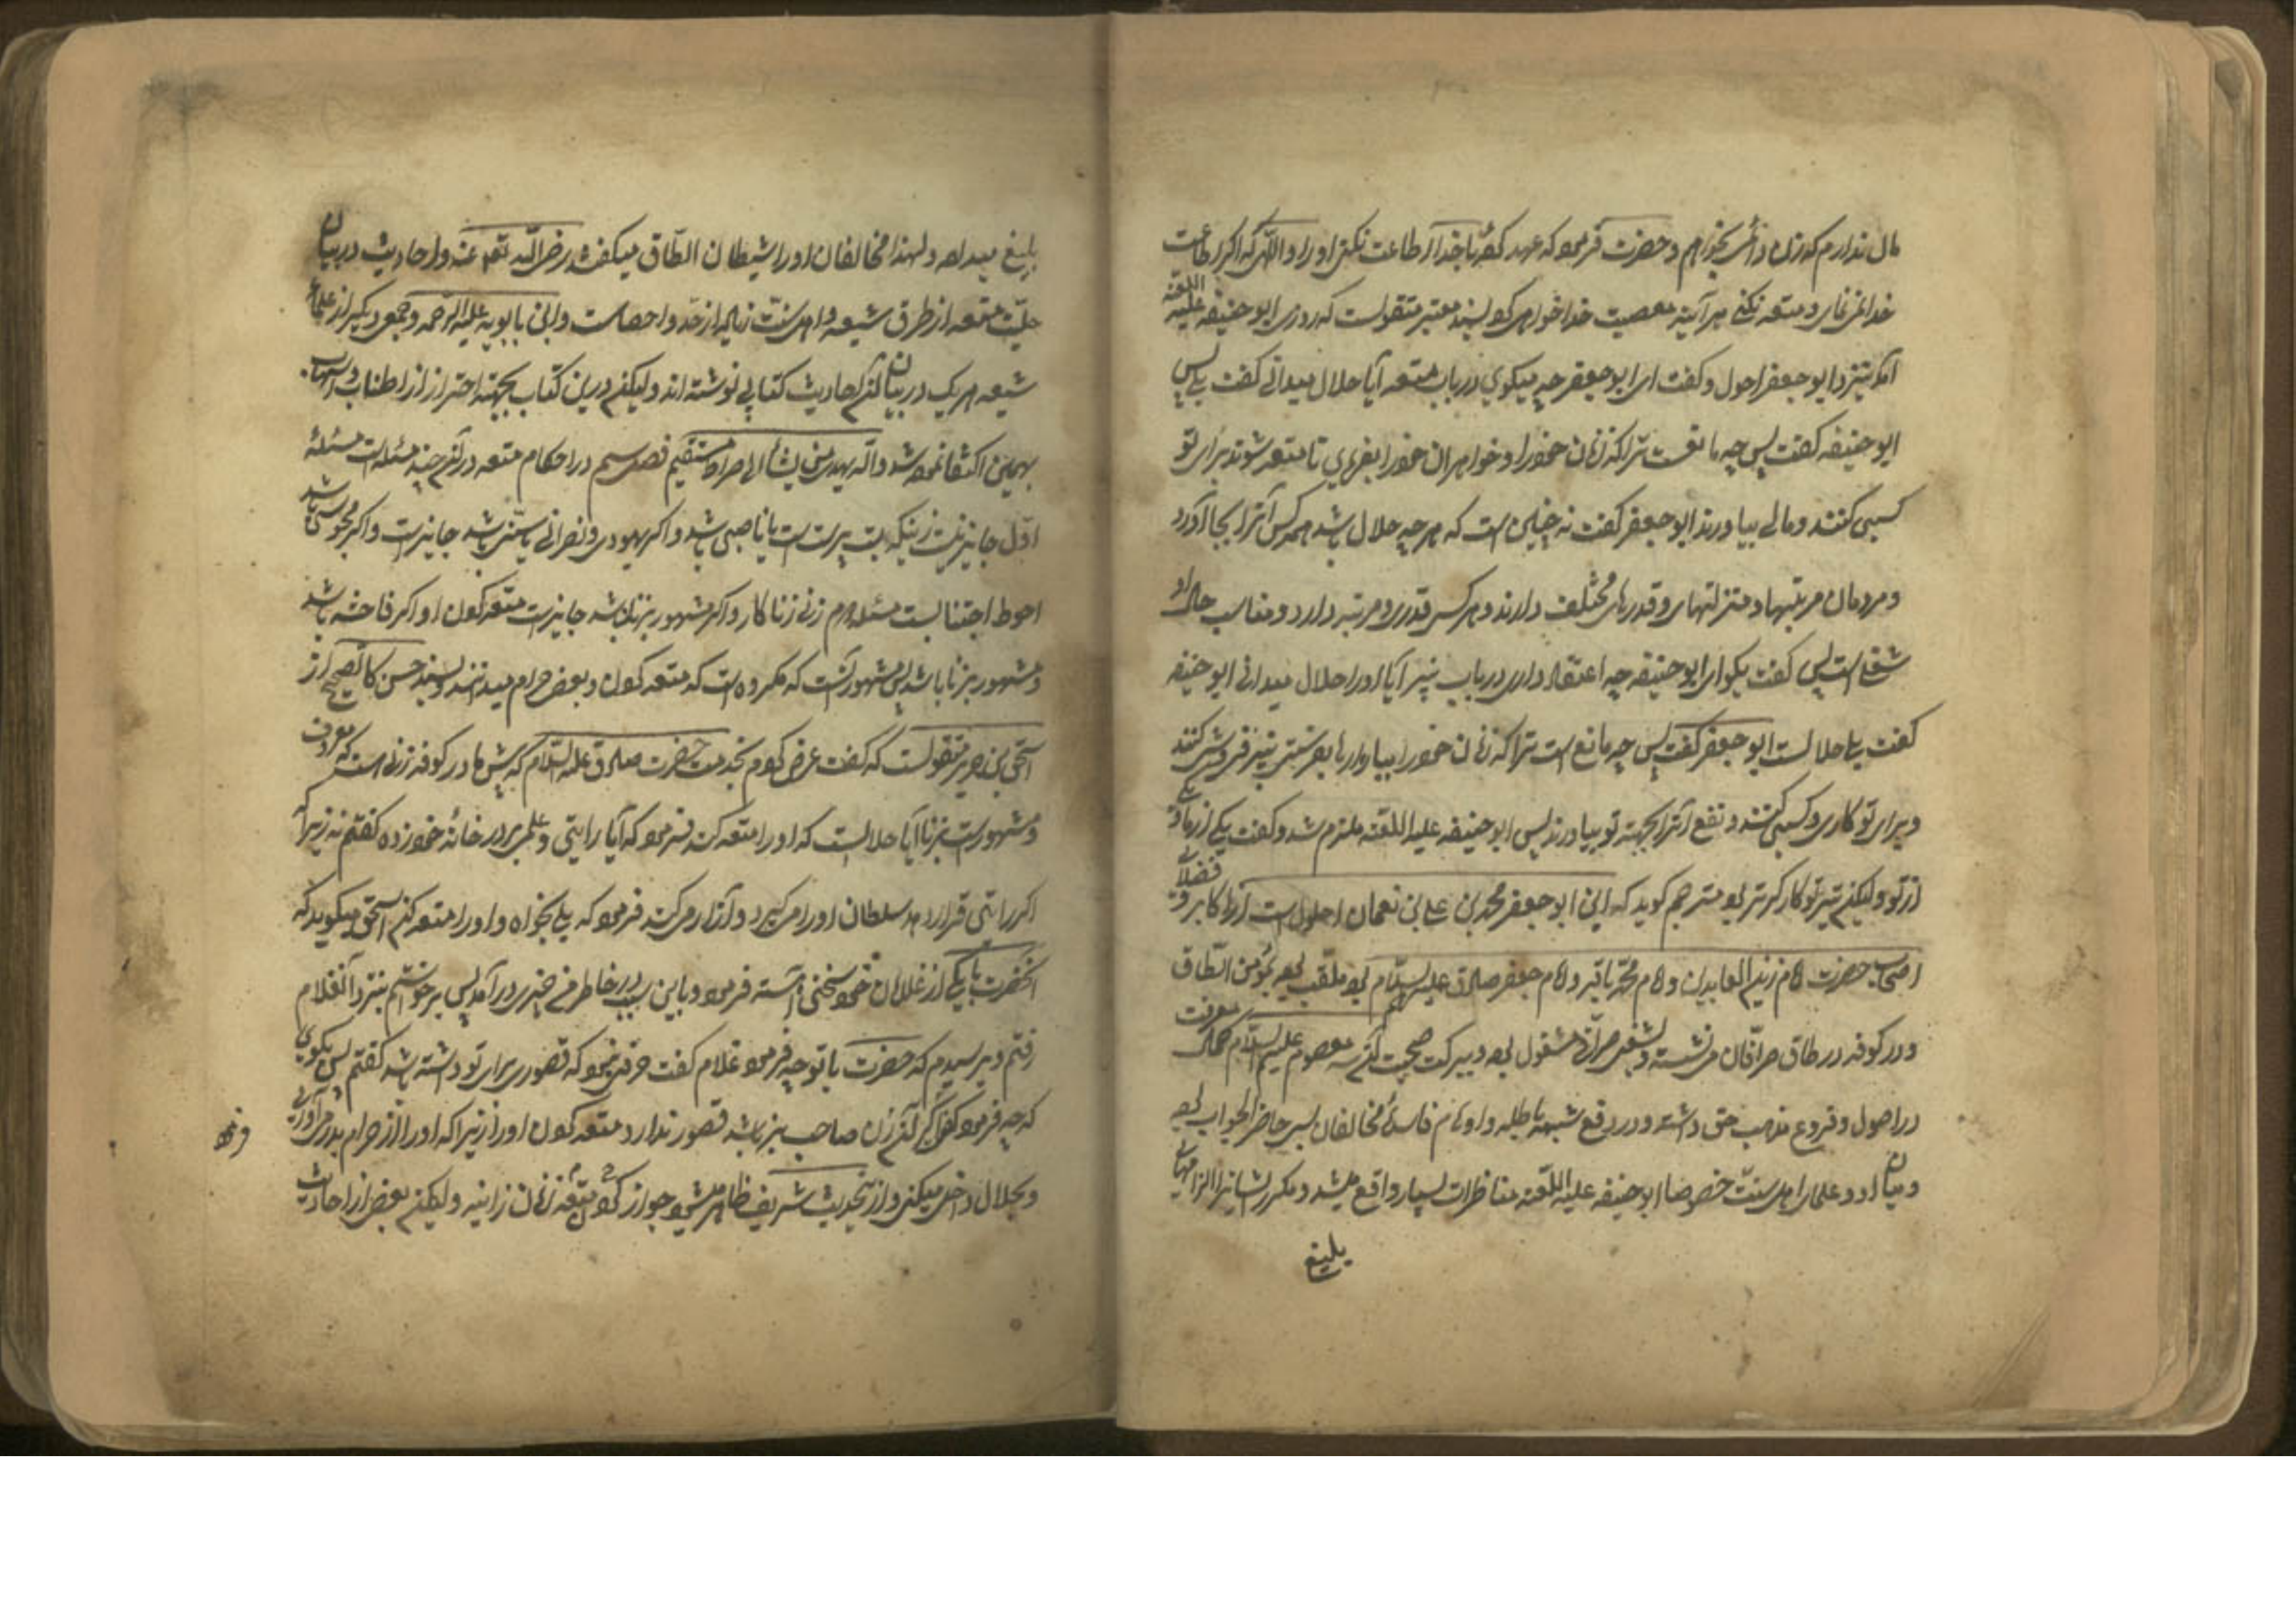 مال ندارم که زن دائمی بخواهم و حضرت فرمود که عهد کرده با خدا که اطاعت نکنی او را والله که اگر اطاعت
خدا نمی نمای و متعه نکنی هر آینه معصیت خدا خواهی کرد بسند معتبر منقولست که روزی ابو حنیفه علیه اللعنه
آمد بنزد ابو جعفر احول و گفت ای ابو جعفر چه میگوی در باب متعه آیا حلال میدانی گفت بلی پس
ابو حنیفه گفت پس چه مانعست ترا که زنان خود را و خواهران خود را بفرمایی تا متعه شوند برای تو
کسبی کنند و مالی بیاورند ابو جعفر گفت نه چنین است که هر چه حلال باشد همه کس آنرا بجا آورد
و مردمان مرتبها و منزلتهای و قدرهای مختلف دارند و هر کس قدری و مرتبه دارد و مناسب حال او
شغلی است پس گفت بگو ای ابو حنیفه چه اعتقاد داری در باب نبیذ آیا او را حلال میدانی ابو حنیفه
گفت بلی حلالست ابو جعفر گفت پس چه مانع است ترا که زنان خود را بیا نبیذ فروشی کنند
و برای تو کاری و کسبی کنند و نفع آنرا بجهته تو بیاورند پس ابو حنیفه علیه اللعنه ملزم شد و گفت یکی از ما و یکی
از تو ولیکن تیر تو کارگرتر بود مترجم گوید که این ابو جعفر محمد بن علی بن نعمان احول است از اکابر و فضلای
اصحاب حضرت امام زین العابدین و امام محمد باقر و امام جعفر صادق علیهم السلام بود ملقب بود بمؤمن الطاق
و در کوفه در طاق صرافان می نشسته و بشغل صرافی مشغول بود و ببرکت صحبت آن سه معصوم علیهم السلام کمال معرفت
در اصول و فروع مذهب حق داشته و در رفع شبهه باطله و اوهام فاسدهٔ مخالفان بسی حاضر الجواب بود
و میان او و علمای اهل سنت خصوصا ابو حنیفه علیه اللعنه مناظرات بسیار واقع میشد و مکرر ایشانرا الزامهای
بلیغ
بلیغ میداده و لهذا مخالفان او را شیطان الطاق میگفتند رضی الله تعالی عنه و احادیث در بیان
حلیت متعه از طرق شیعه و اهل سنت زیاده از حد و احصاست و ابن بابویه علیه الرحمه و جمعی دیگر از علمای
شیعه هر یک در بیان آن احادیث کتابی نوشته اند ولیکن درین کتاب بجهته احتراز از اطناب
بهمین اکتفا نموده شد والله یهدی من یشاء الی صراط مستقیم فصل سیم در احکام متعه و در آن چند مسئله است مسئلهٔ
اول جایز نیست زنیکه بت پرست است یا ناصبی باشد و اگر یهودی و نصرانی یا سنی باشد جایز است و اگر مجوسی باشد
احوط اجتنابست مسئله دوم زنی زنا کار و اگر مشهور بزنا نباشد جایز است متعه کردن او اگر فاحشه باشد
و مشهور بزنا باشد پس مشهور آنست که مکروه است که متعه کردن و بعضی حرام میدانند و بسند حسن کالصحیح از
اسحق بن جریر منقولست که گفت عرض کردم بخدمت حضرت صادق علیه السلام که پیش ما در کوفه زنی است که معروف
و مشهور است بزنا آیا حلالست که او را متعه کنم فرمود که آیا رایتی و علمی بر در خانهٔ خود زده گفتم نه زیرا که
اگر رایتی قرار دهد سلطان او را می گیرد و آزار می کند فرمود که بلی بخواه و او را متعه کن اسحق میگوید که
آنحضرت با یکی از غلامان خود سخنی آهسته فرمود و باین سبب در خاطر من چیزی درآمد پس برخواستم بنزد آنغلام
رفتم و پرسیدم که حضرت با تو چه فرمود غلام گفت حرفی نبود که قصوری برای تو داشته باشد گفتم پس بگوی
که چه فرمود گفت اگر آن زن صاحب باشد قصور ندارد متعه کردن او را زیرا که او را از حرام بدر می آورد
و بحلال داخل میکنی و از این حدیث شریف ظاهر میشود جواز متعه زنان زانیه ولیکن بعضی از احادیث